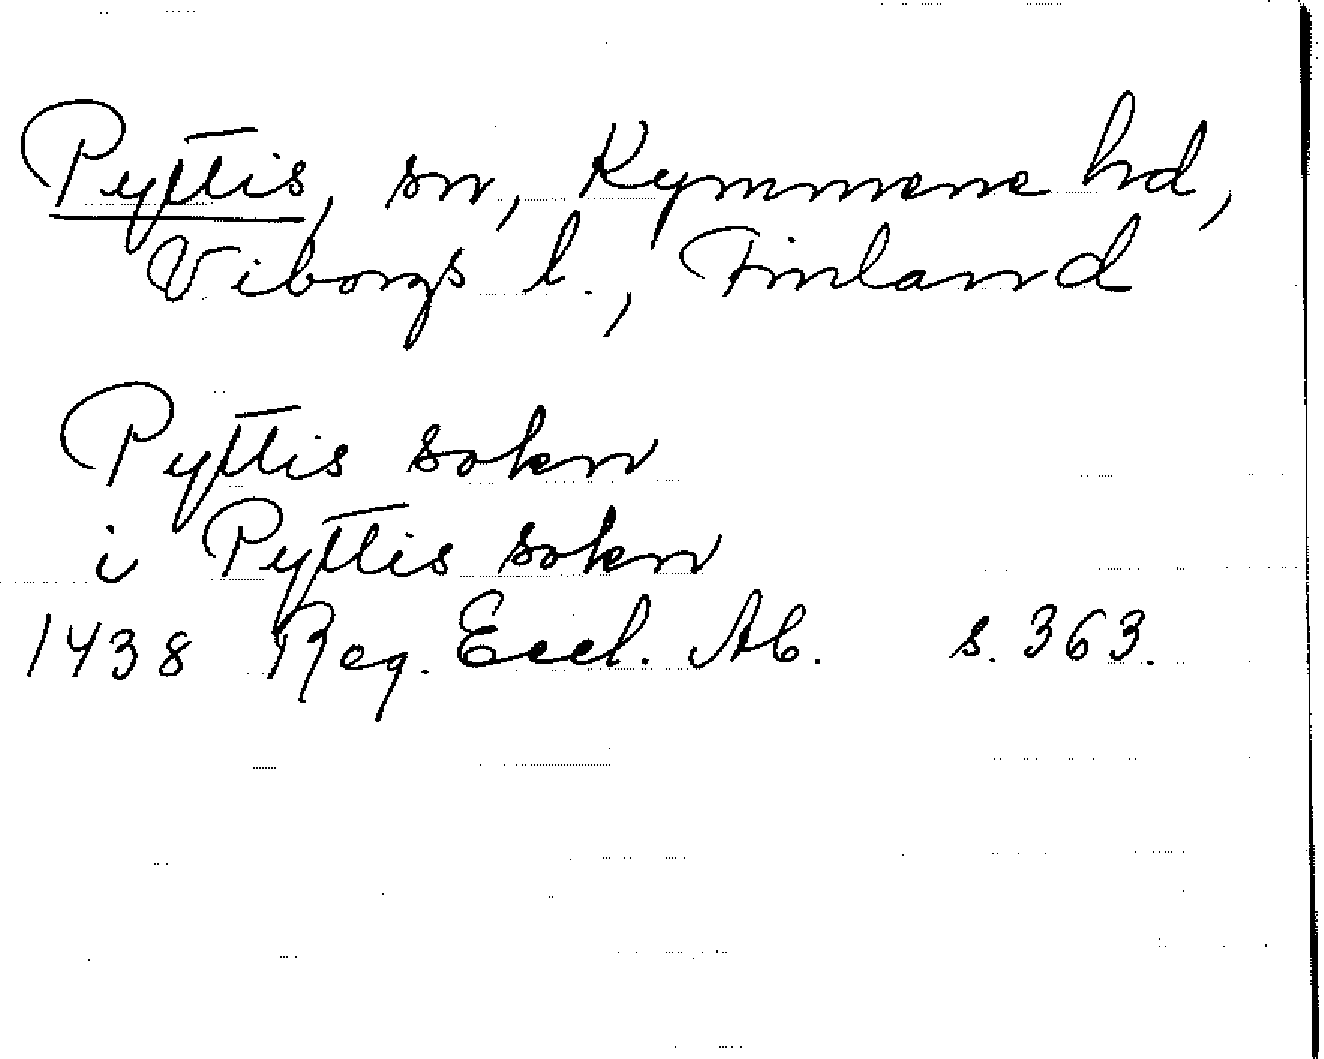 Pyttis, sn, Kymmene hd,
Viborgs l., Finland
Pyttis sokn
i Pyttis sokn
1438 Reg. Eccl. Ab. s. 363.